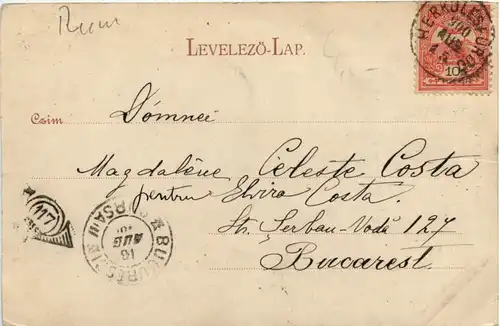 Rum
LEVELEZŐ-LAP.
HERKULESFÜRDŐ
900
AUG
10
Czim
Dómnei
Magdalène Celeste Costa
pentru Elvira Costa.
Str. Serban-Vodă 127
Bucarest.
117
BUCURESCI
CURSA III
16
AUG